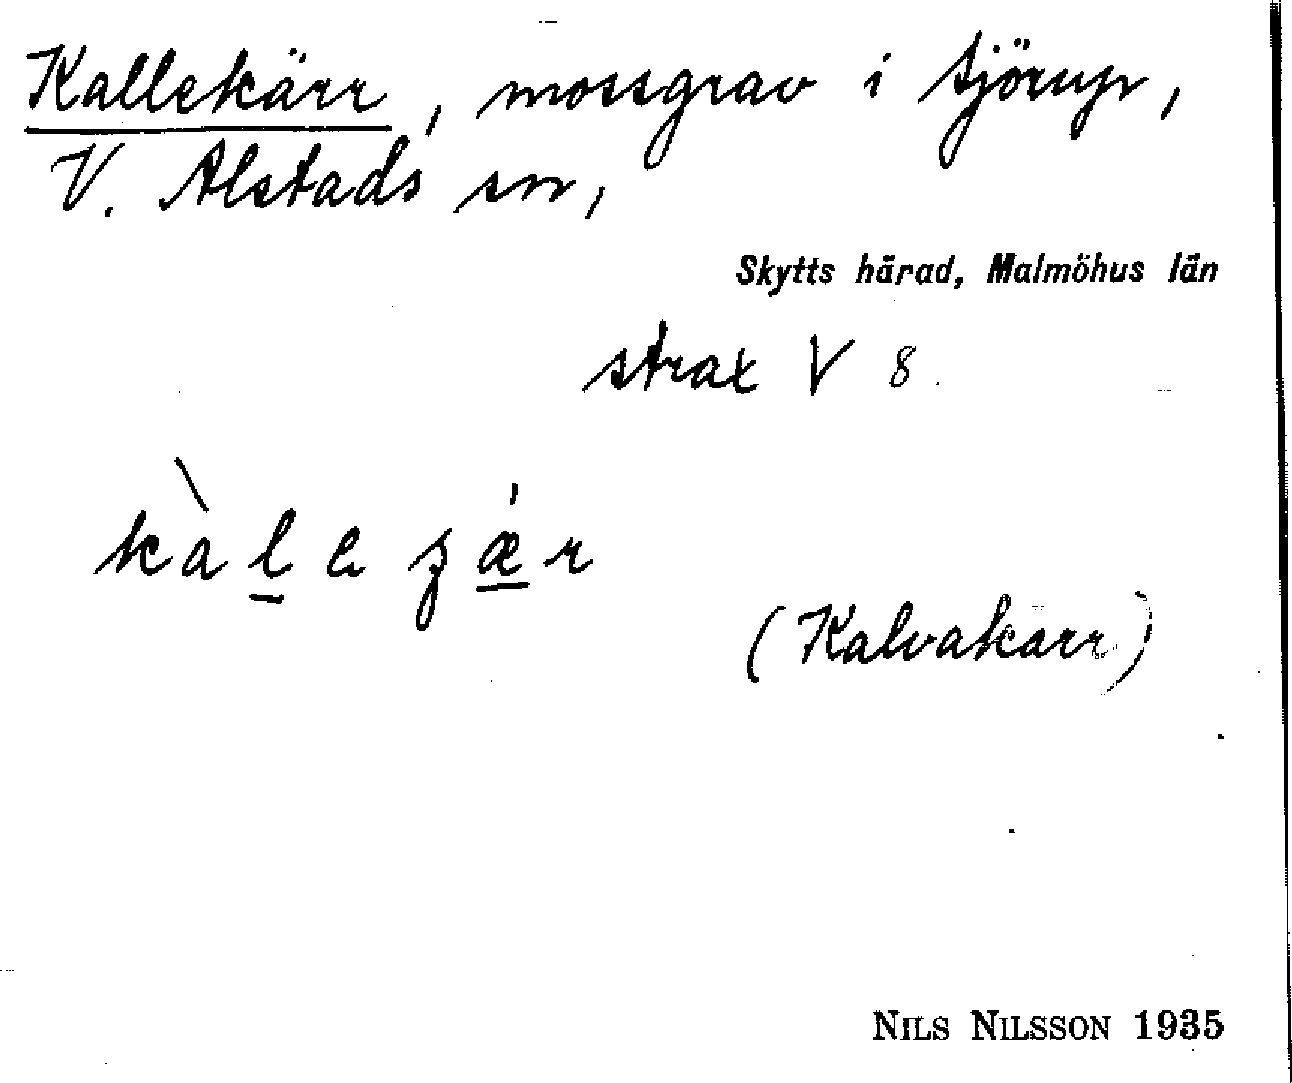 Kallekärr, mossgrav i Sjörup,
V. Alstads sn,
Skytts härad, Malmöhus län
strax V 8.
kàleʒǽr
(Kalvakärr)
NILS NILSSON 1935